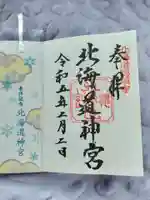 奉拝
北海道神宮
令和五年二月二日
北海道神宮